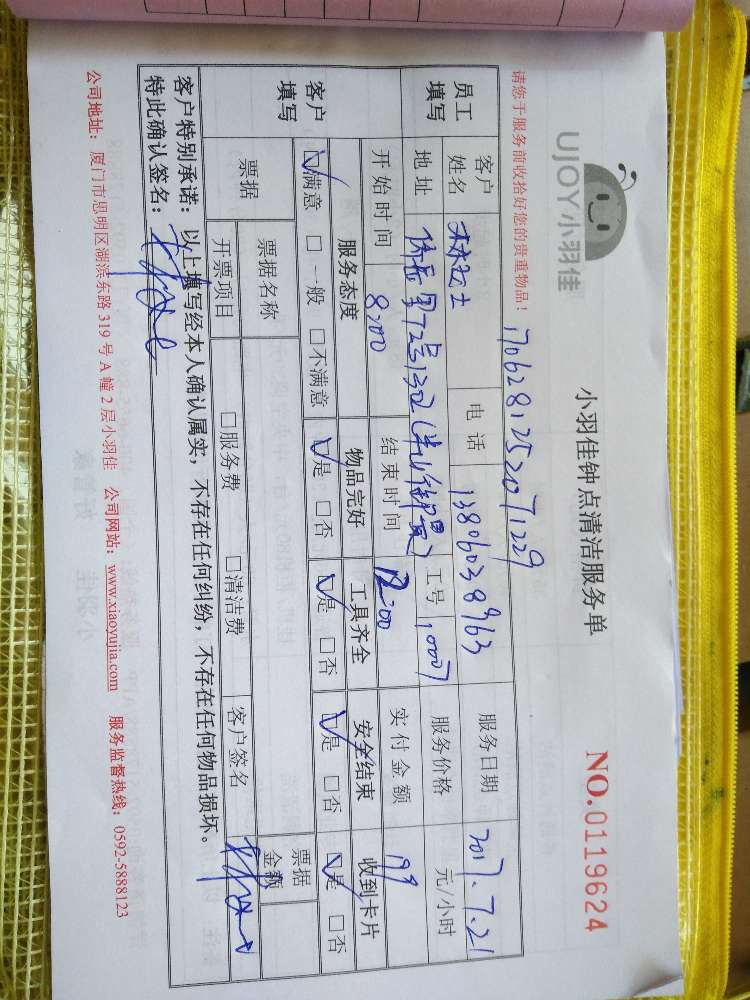 UJOY小羽佳
小羽佳钟点清洁服务单
NO.0119624
请您于服务前收拾好您的贵重物品！
1706281252071229
员工填写
客户姓名 林女士 电话 13806038963 服务日期 2017.7.21
地址 72号1302 工号 10007 服务价格 元/小时
开始时间 8:00 结束时间 12:00 实付金额 199
客户填写
服务态度 物品完好 工具齐全 安全结束 收到卡片
☑满意 □一般 □不满意 ☑是 □否 ☑是 □否 ☑是 □否 ☑是 □否
票据 票据名称 票据金额
开票项目 □服务费 □清洁费 客户签名
客户特别承诺：以上填写经本人确认属实，不存在任何纠纷，不存在任何物品损坏。
特此确认签名：
公司地址：厦门市思明区湖滨东路319号A幢2层小羽佳 公司网站：www.xiaoyujia.com 服务监督热线：0592-5888123